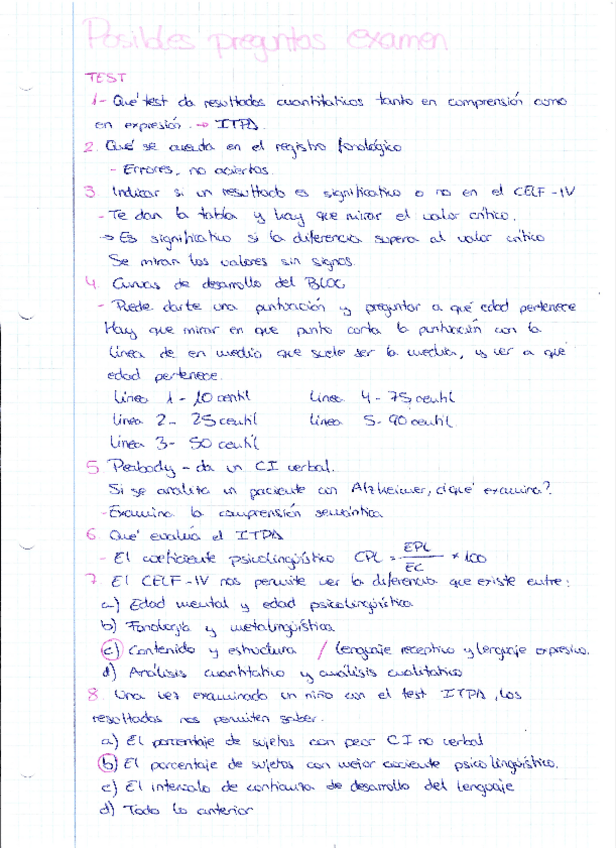 Posibles preguntas examen
TEST
1- Qué test da resultados cuantitativos tanto en comprensión como
en expresión. → ITPA.
2. Qué se anota en el registro fonológico
- Errores, no aciertos.
3. Indicar si un resultado es significativo o no en el CELF-IV
- Te dan la tabla y hay que mirar el valor crítico.
→ Es significativo si la diferencia supera al valor crítico
Se miran los valores sin signos.
4. Curvas de desarrollo del BLOC
- Puede darte una puntuación y preguntar a qué edad pertenece
Hay que mirar en que punto corta la puntuación con la
línea de en medio que suele ser la media, y ver a que
edad pertenece.
Línea 1 - 10 centil Línea 4 - 75 centil
línea 2 - 25 centil línea 5 - 90 centil.
línea 3 - 50 centil
5 Peabody - da un CI verbal.
Si se analiza un paciente con Alzheimer, ¿qué examina?
- Examina la comprensión semántica
6. Qué evalua el ITPA
- El coeficiente psicolingüístico CPL = EPL / EC × 100
7. El CELF-IV nos permite ver la diferencia que existe entre:
a) Edad mental y edad psicolingüística
b) Fonología y metalingüística.
c) Contenido y estructura / lenguaje receptivo y lenguaje expresivo.
d) Análisis cuantitativo y análisis cualitativo
8. Una vez examinado un niño con el test ITPA, los
resultados nos permiten saber.
a) El porcentaje de sujetos con peor CI no verbal
b) El porcentaje de sujetos con mejor cociente psicolingüístico.
c) El intervalo de confianza de desarrollo del lenguaje
d) Todo lo anterior